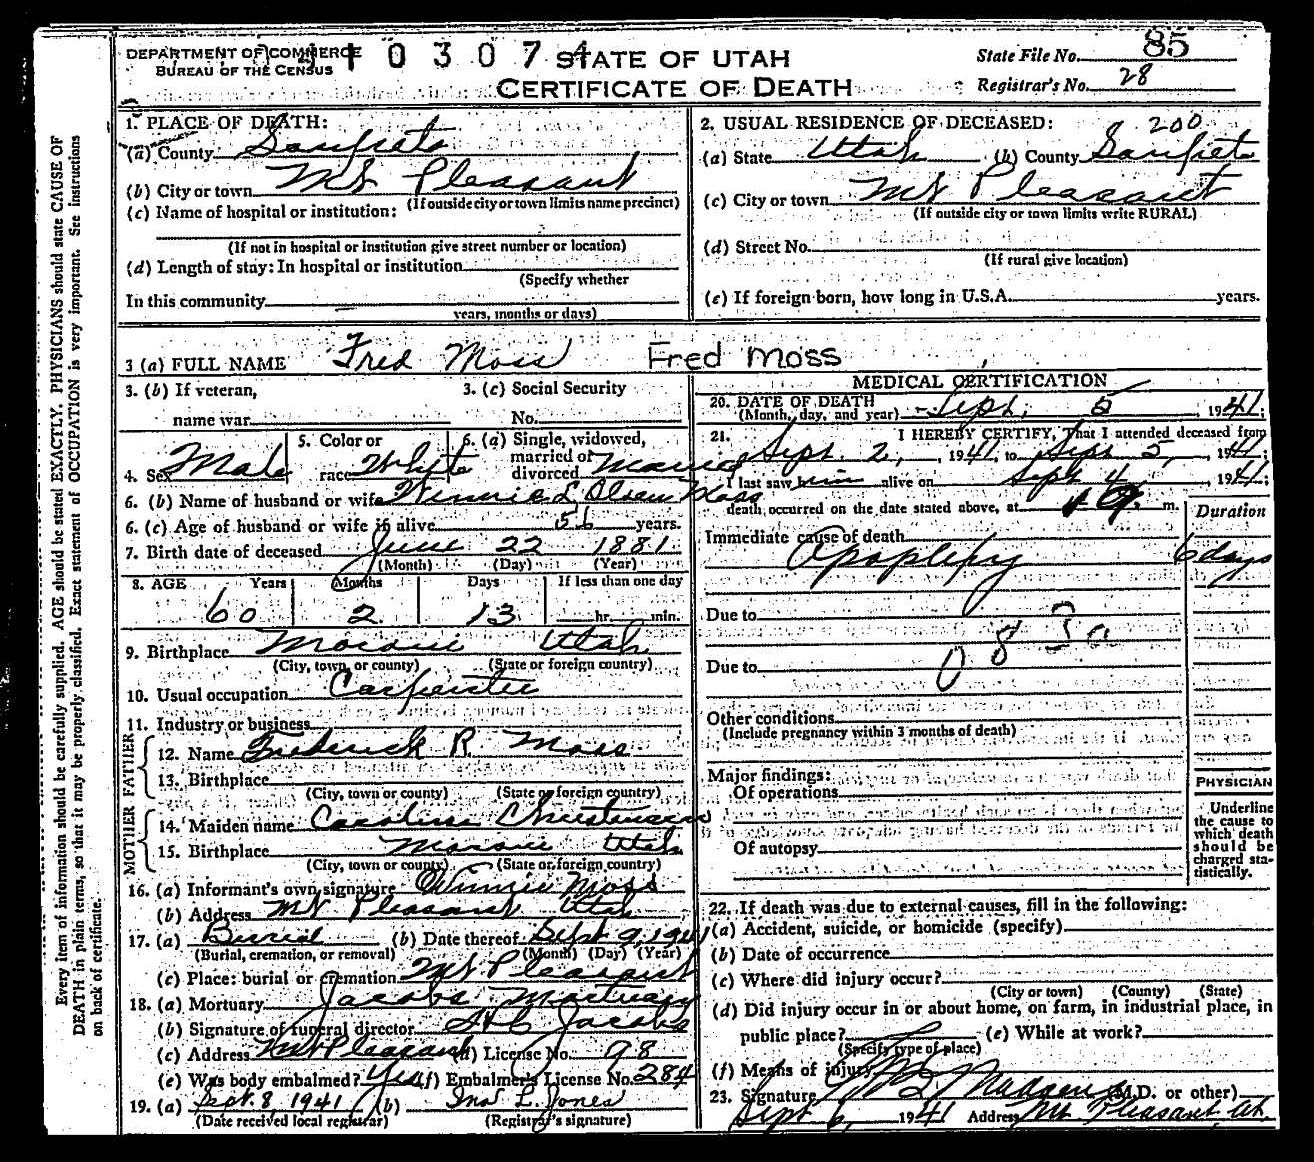 DEPARTMENT OF COMMERCE
BUREAU OF THE CENSUS
10 3 0 7 4
STATE OF UTAH
CERTIFICATE OF DEATH
State File No. 85
Registrar's No. 28
1. PLACE OF DEATH:
(a) County Sanpete
(b) City or town Mt Pleasant
(If outside city or town limits name precinct)
(c) Name of hospital or institution:
(If not in hospital or institution give street number or location)
(d) Length of stay: In hospital or institution
(Specify whether
In this community
years, months or days)
2. USUAL RESIDENCE OF DECEASED: 200
(a) State Utah (b) County Sanpete
(c) City or town Mt Pleasant
(If outside city or town limits write RURAL)
(d) Street No.
(If rural give location)
(e) If foreign born, how long in U.S.A. years.
3 (a) FULL NAME Fred Moss Fred Moss
3. (b) If veteran, 3. (c) Social Security
name war No.
4. Sex Male 5. Color or race White 6. (a) Single, widowed, married or divorced Married
6. (b) Name of husband or wife Winnie L Olsen Moss
6. (c) Age of husband or wife if alive 56 years.
7. Birth date of deceased June 22 1881
(Month) (Day) (Year)
8. AGE Years Months Days If less than one day
60 2 13 hr. min.
9. Birthplace Moroni Utah
(City, town, or county) (State or foreign country)
10. Usual occupation Carpenter
11. Industry or business
FATHER
12. Name Frederick R Moss
13. Birthplace
(City, town or county) (State or foreign country)
MOTHER
14. Maiden name Caroline Christensen
15. Birthplace Moroni Utah
(City, town or county) (State or foreign country)
16. (a) Informant's own signature Winnie Moss
(b) Address Mt Pleasant Utah
17. (a) Burial (b) Date thereof Sept 9, 1941
(Burial, cremation, or removal) (Month) (Day) (Year)
(c) Place: burial or cremation Mt Pleasant
18. (a) Mortuary Jacobs Mortuary
(b) Signature of funeral director H C Jacobs
(c) Address Mt Pleasant (d) License No. 98
(e) Was body embalmed? Yes (f) Embalmer's License No. 284
19. (a) Sept. 8, 1941 (b) Jno. L. Jones
(Date received local registrar) (Registrar's signature)
MEDICAL CERTIFICATION
20. DATE OF DEATH
(Month, day, and year) Sept. 5, 1941;
21. I HEREBY CERTIFY, That I attended deceased from
Sept. 2, 1941, to Sept 5, 1941;
I last saw him alive on Sept 4, 1941;
death occurred on the date stated above, at m.
Duration
Immediate cause of death
Apoplexy 6 days
Due to
083a
Due to
Other conditions
(Include pregnancy within 3 months of death)
Major findings:
Of operations
Of autopsy
PHYSICIAN
Underline
the cause to
which death
should be
charged sta-
tistically.
22. If death was due to external causes, fill in the following:
(a) Accident, suicide, or homicide (specify)
(b) Date of occurrence
(c) Where did injury occur?
(City or town) (County) (State)
(d) Did injury occur in or about home, on farm, in industrial place, in
public place? (e) While at work?
(Specify type of place)
(f) Means of injury
23. Signature Madsen (M.D. or other)
Sept 6, 1941 Address Mt. Pleasant, Ut.
Every item of information should be carefully supplied. AGE should be stated EXACTLY. PHYSICIANS should state CAUSE OF
DEATH in plain terms, so that it may be properly classified. Exact statement of OCCUPATION is very important. See instructions
on back of certificate.